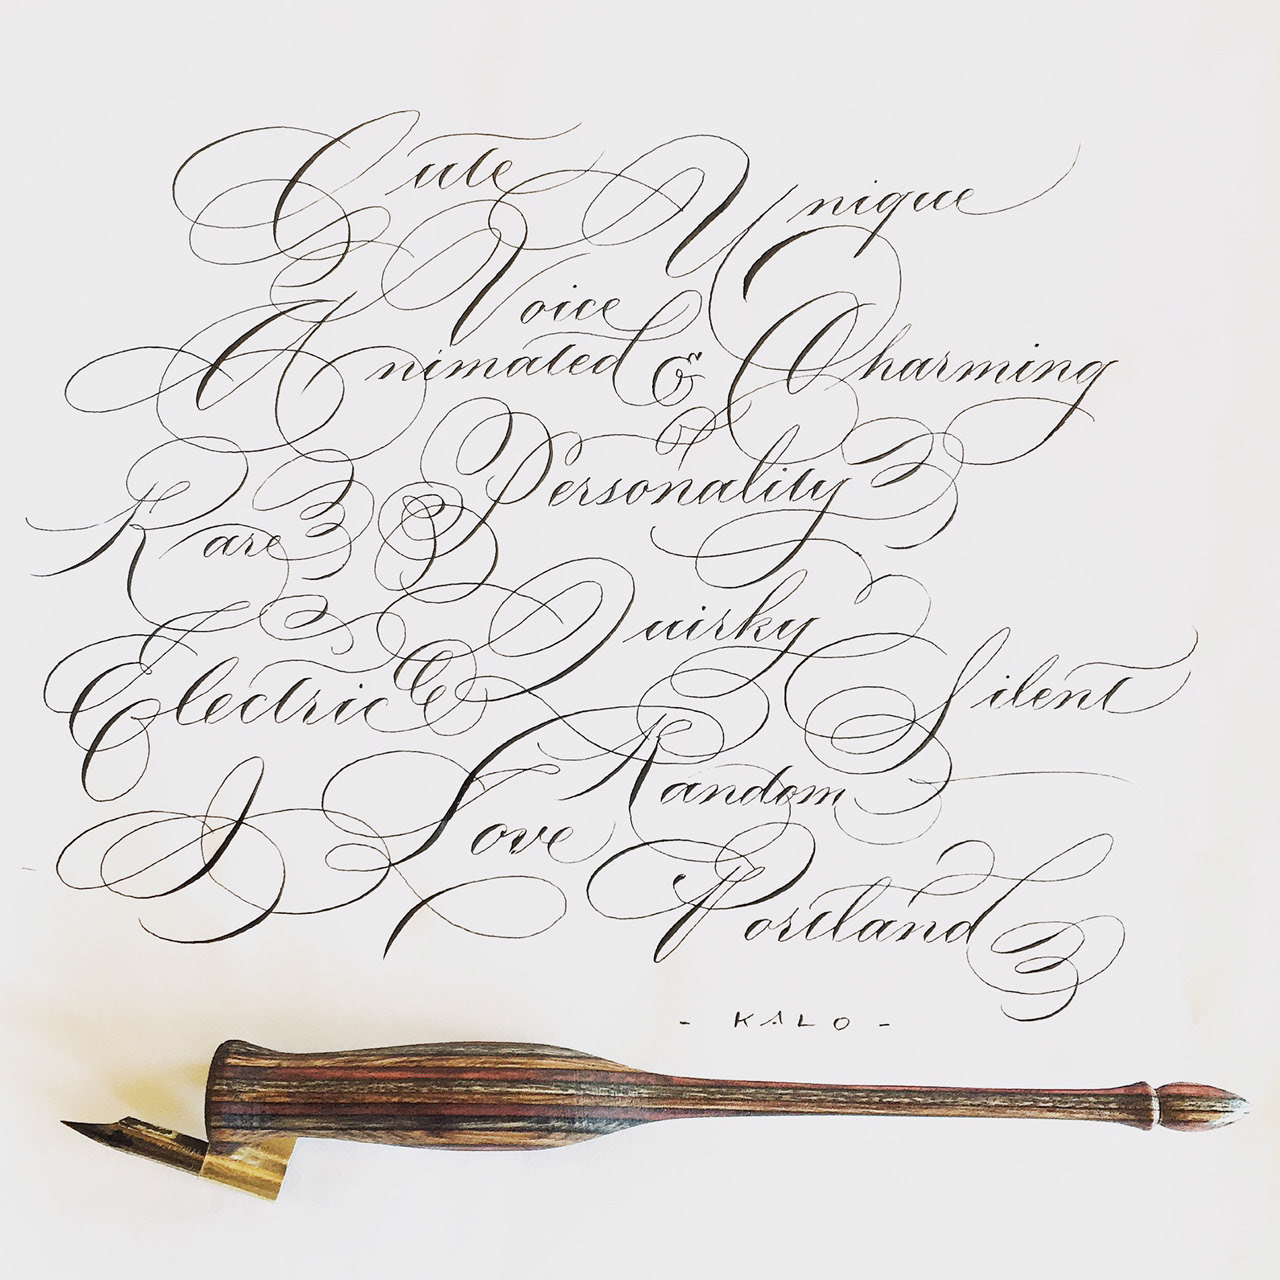 Cute Unique
Voice
Animated & Charming
Personality
Rare
Quirky
Electric Silent
Random
I Love
Portland
- KALO -